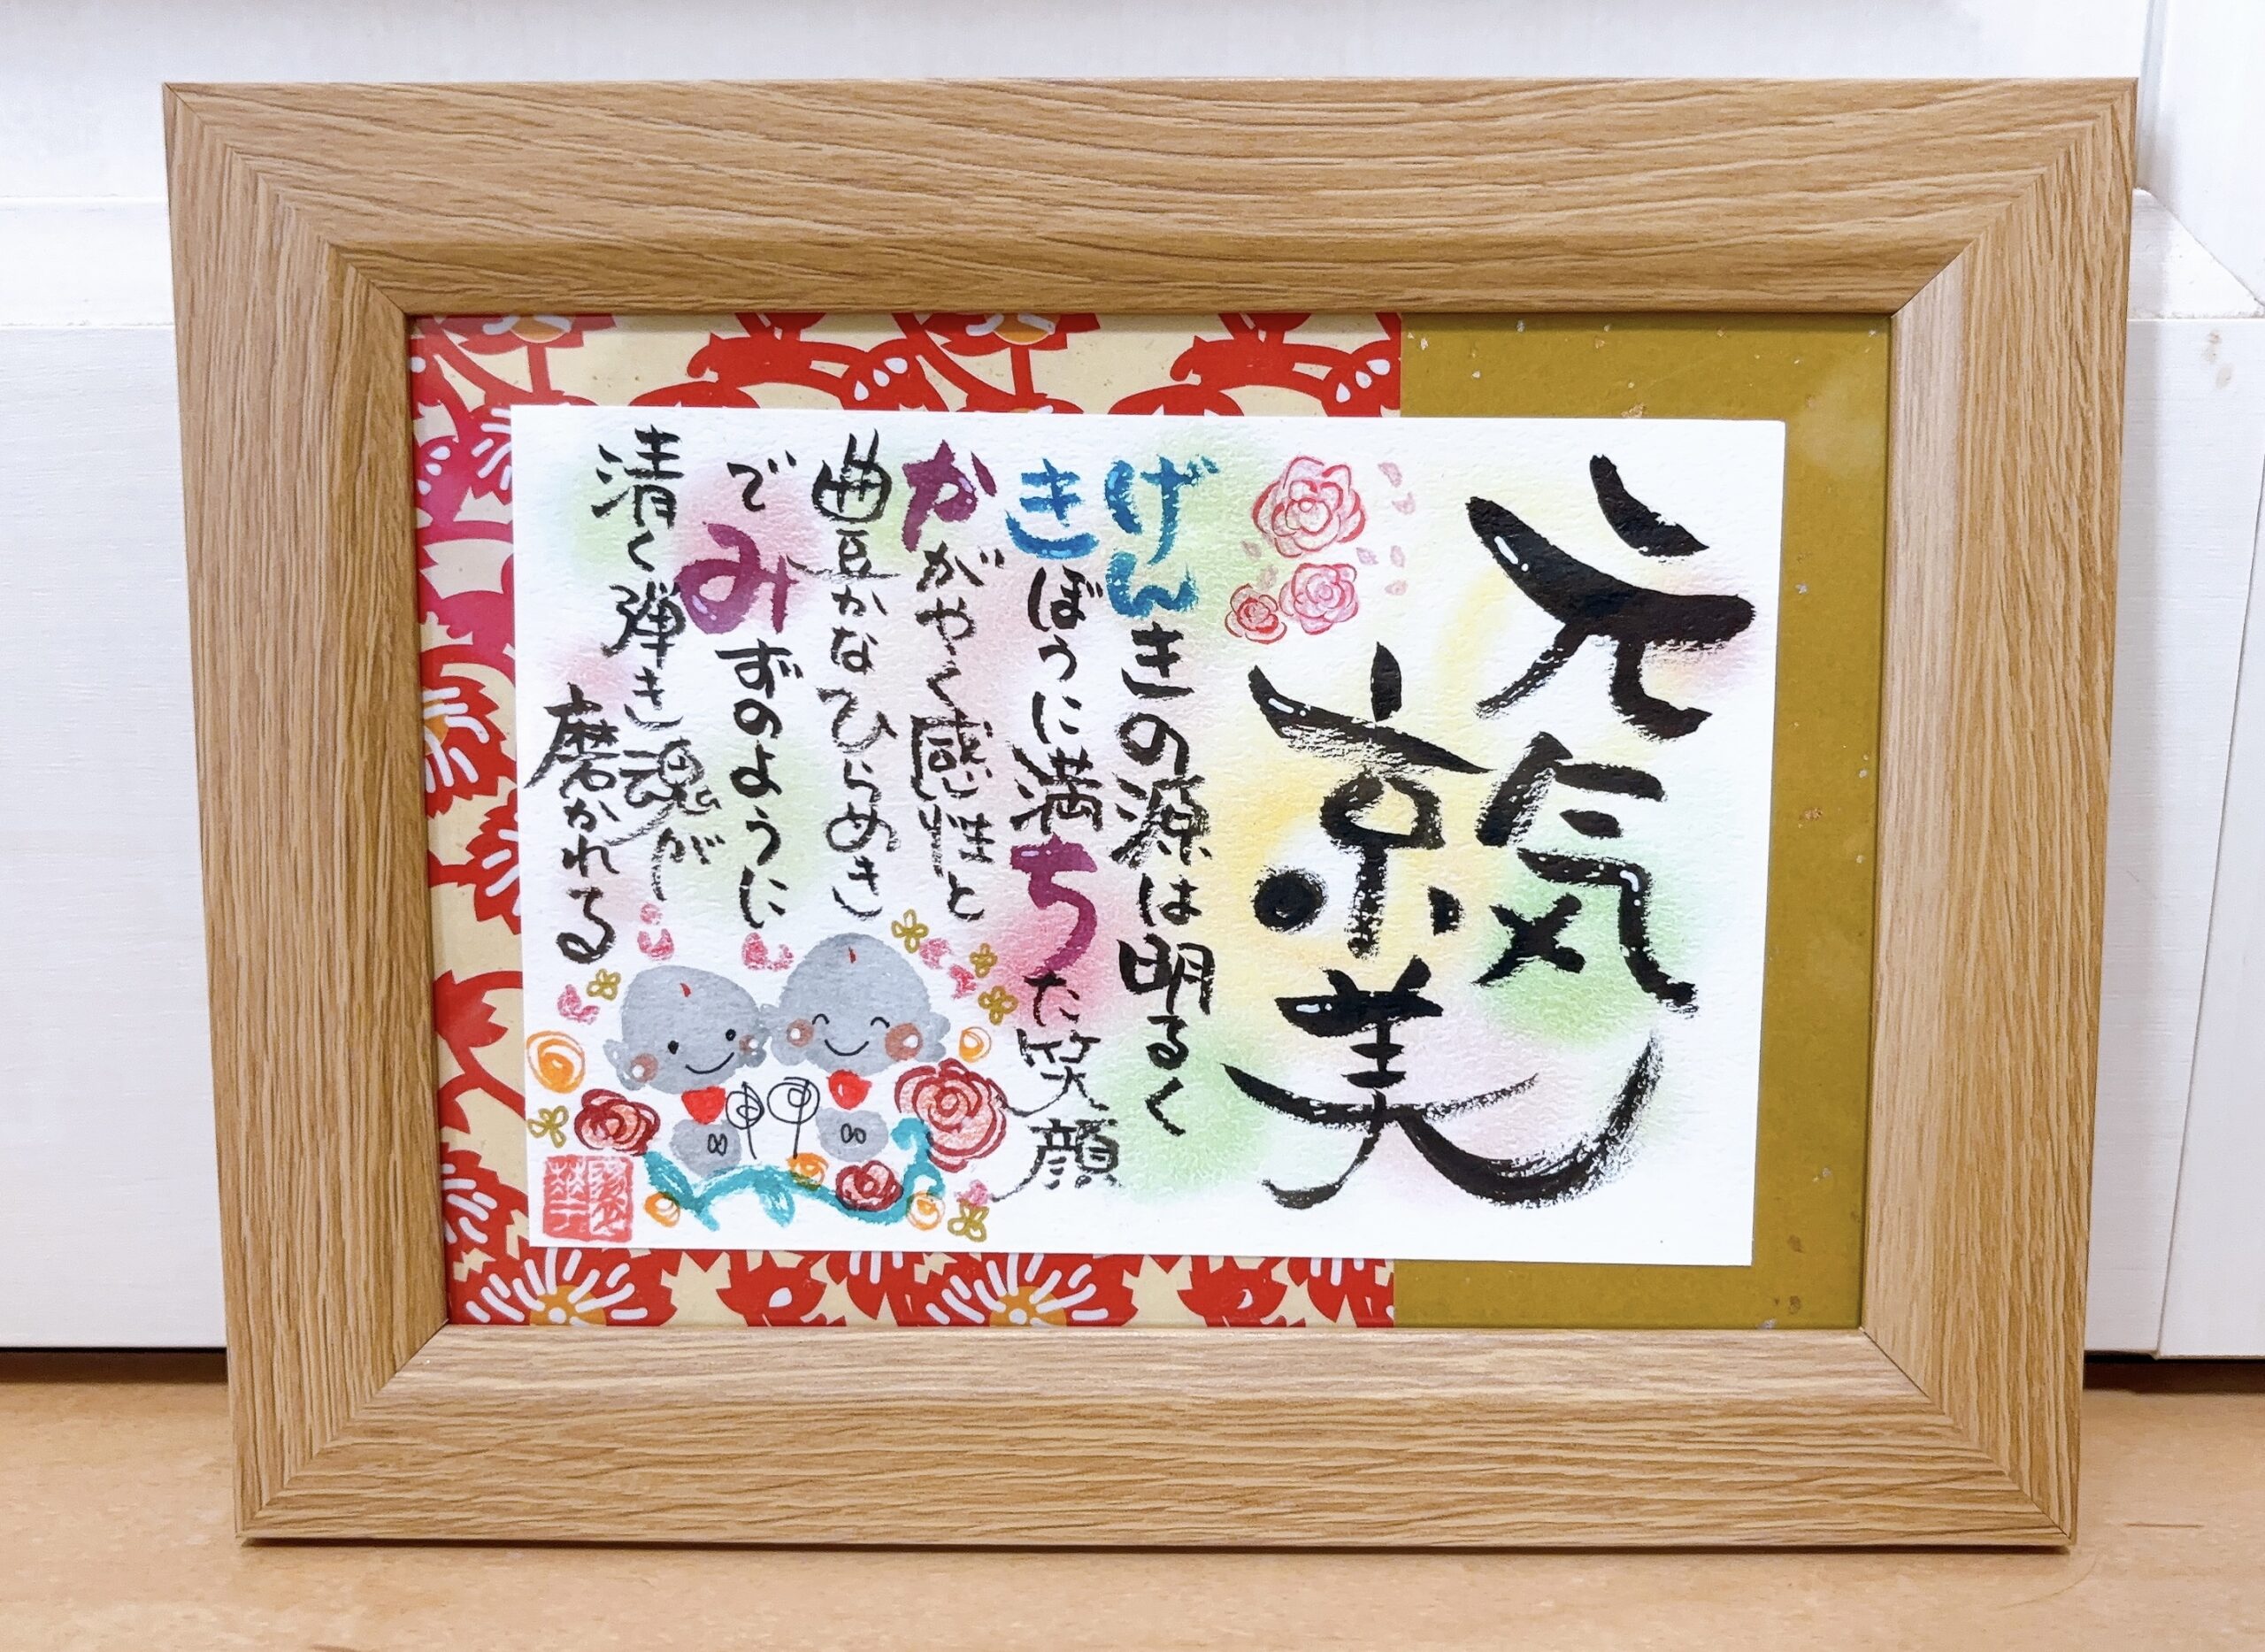 元気
京美
げんきの源は明るく
きぼうに満ちた笑顔
かがやく感性と
豊かなひらめき
でみずのように
清く弾き魂が
磨かれる